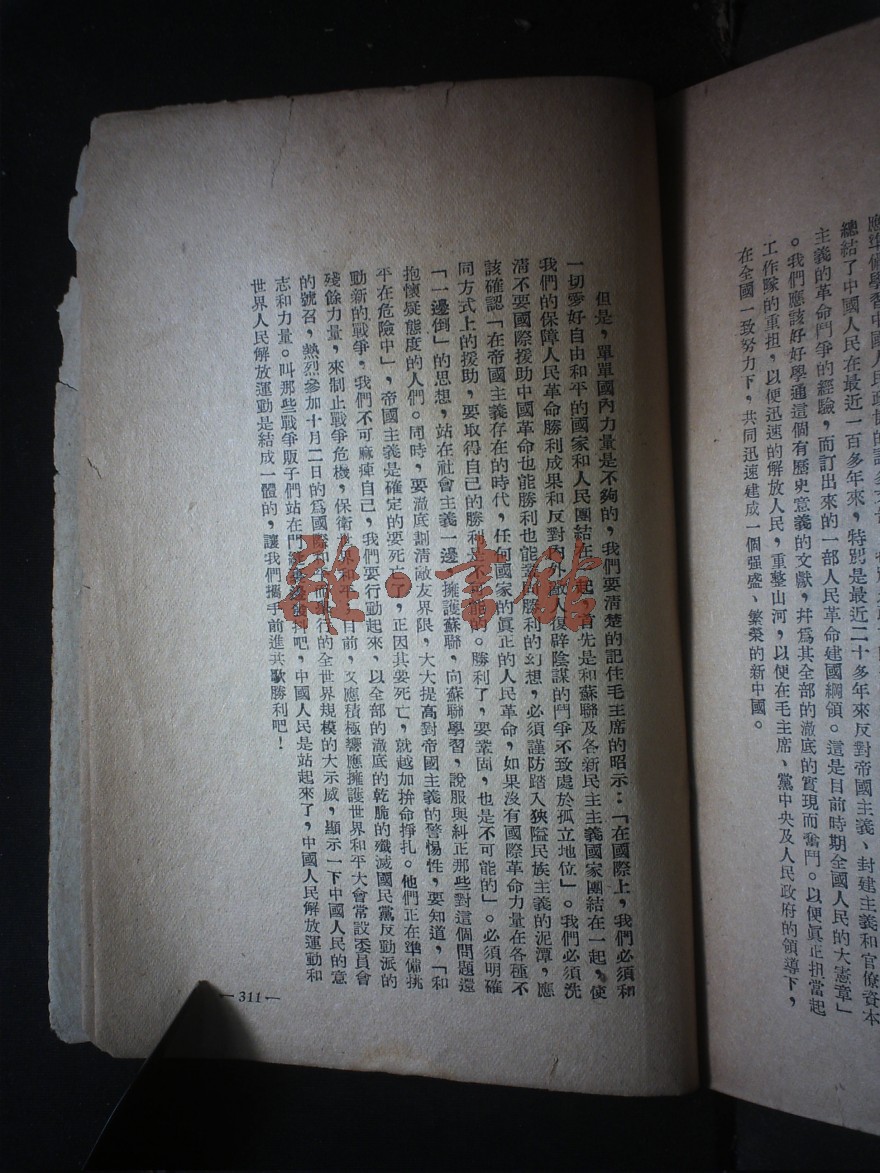 應準備學習中國人民政協的許多文
總結了中國人民在最近一百多年來,特別是最近二十多年來反對帝國主義、封建主義和官僚資本
主義的革命鬥爭的經驗,而訂出來的一部人民革命建國綱領。這是目前時期全國人民的大憲章」
。我們應該好好學通這個有歷史意義的文獻,幷爲其全部的澈底的實現而奮鬥。以便眞正担當起
工作隊的重担,以便迅速的解放人民,重整山河,以便在毛主席、黨中央及人民政府的領導下,
在全國一致努力下,共同迅速建成一個强盛、繁榮的新中國。
但是,單單國內力量是不夠的,我們要清楚的記住毛主席的昭示:「在國際上,我們必須和
一切愛好自由和平的國家和人民團結在一起,首先是和蘇聯及各新民主主義國家團結在一起,使
我們的保障人民革命勝利成果和反對內外敵人復辟陰謀的鬥爭不致處於孤立地位」。我們必須洗
清不要國際援助中國革命也能勝利也能鞏固勝利的幻想,必須謹防踏入狹隘民族主義的泥潭,應
該確認「在帝國主義存在的時代,任何國家的眞正的人民革命,如果沒有國際革命力量在各種不
同方式上的援助,要取得自己的勝利是不可能的。勝利了,要鞏固,也是不可能的」。必須明確
「一邊倒」的思想,站在社會主義一邊,擁護蘇聯,向蘇聯學習,說服與糾正那些對這個問題還
抱懷疑態度的人們。同時,要澈底劃清敵友界限,大大提高對帝國主義的警惕性,要知道,「和
平在危險中」,帝國主義是確定的要死亡了,正因其要死亡,就越加拚命掙扎。他們正在準備挑
動新的戰爭,我們不可麻痺自己,我們要行動起來,以全部的澈底的乾脆的殲滅國民黨反動派的
殘餘力量,來制止戰爭危機,保衛世界和平。目前,又應積極響應擁護世界和平大會常設委員會
的號召,熱烈參加十月二日的爲國際和平而舉行的全世界規模的大示威,顯示一下中國人民的意
志和力量。叫那些戰爭販子們站在門縫裏發抖吧,中國人民是站起來了,中國人民解放運動和
世界人民解放運動是結成一體的,讓我們攜手前進共歌勝利吧!
—311—
雜·書館